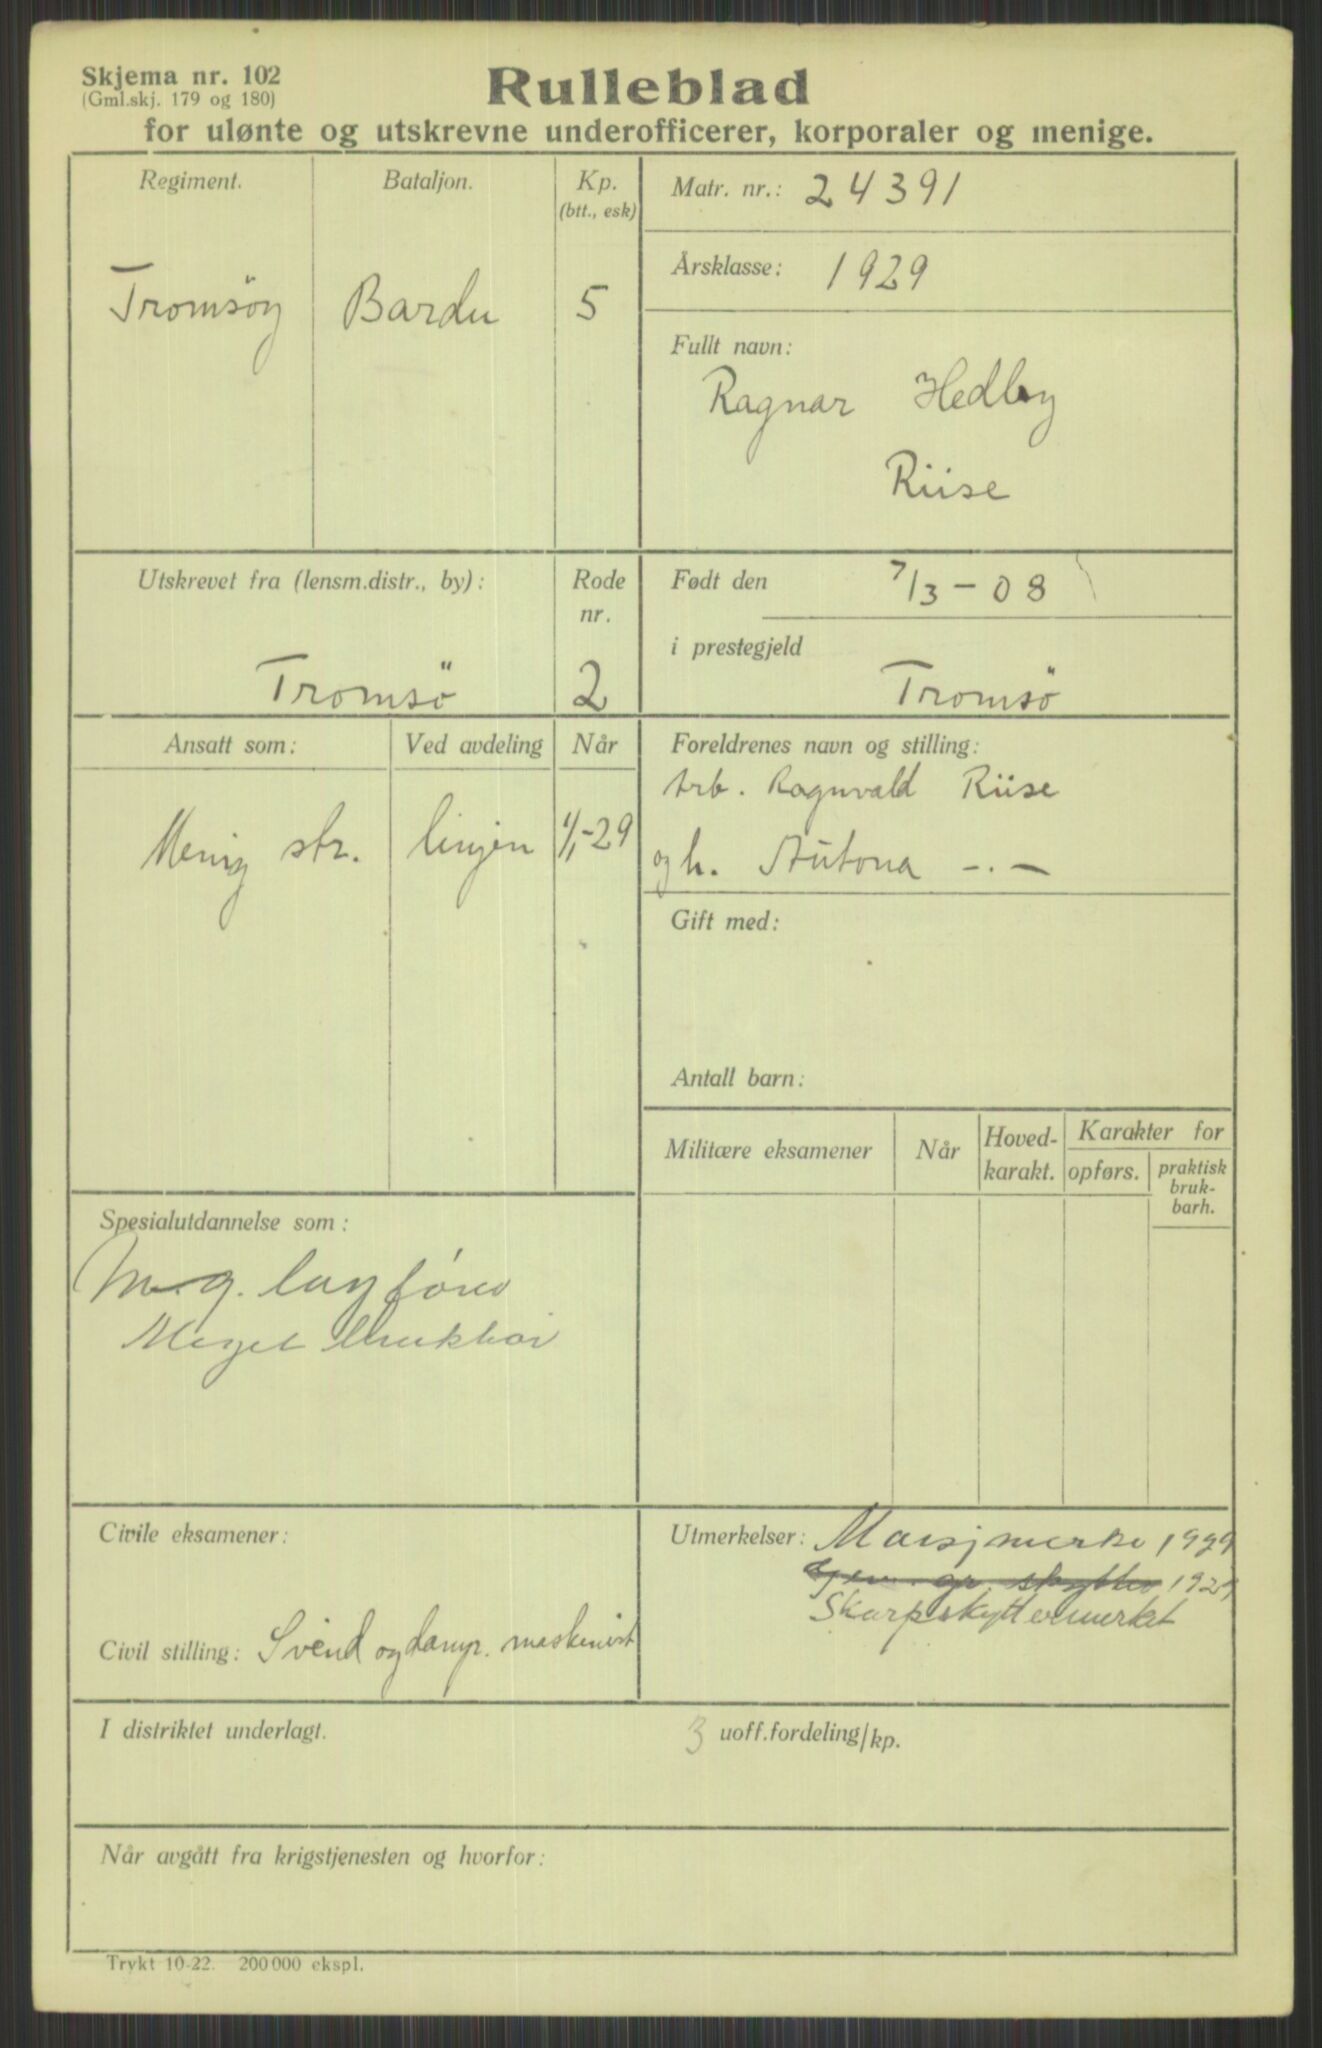 Skjema nr. 102
(Gml.skj. 179 og 180)
Rulleblad
for ulønte og utskrevne underofficerer, korporaler og menige.
Regiment.
Bataljon.
Kp.
(btt., esk)
Tromsöy
Bardu
5
Matr. nr.: 24391
Årsklasse: 1929
Fullt navn:
Ragnar Hedley
Riise
Utskrevet fra (lensm.distr., by):
Tromsö
Rode
nr.
2
Født den 7/3-08
i prestegjeld
Tromsö
Ansatt som:
Ved avdeling
Når
Menig str.
linjen
1/1-29
Foreldrenes navn og stilling:
Arb. Ragnvald Riise
og h. Antona -.-
Gift med:
Antall barn:
Militære eksamener
Når
Hoved-
karakt.
Karakter for
opførs.
praktisk
bruk-
barh.
Spesialutdannelse som:
M.g. lagfører
Meget brukbar
Civile eksamener:
Civil stilling: Svend og damp. maskinist
Utmerkelser: Marsjmerke 1929
skytter 1929
Skarpskyttermerket
I distriktet underlagt.
3 uoff.fordeling/kp.
Når avgått fra krigstjenesten og hvorfor:
Trykt 10-22. 200 000 ekspl.